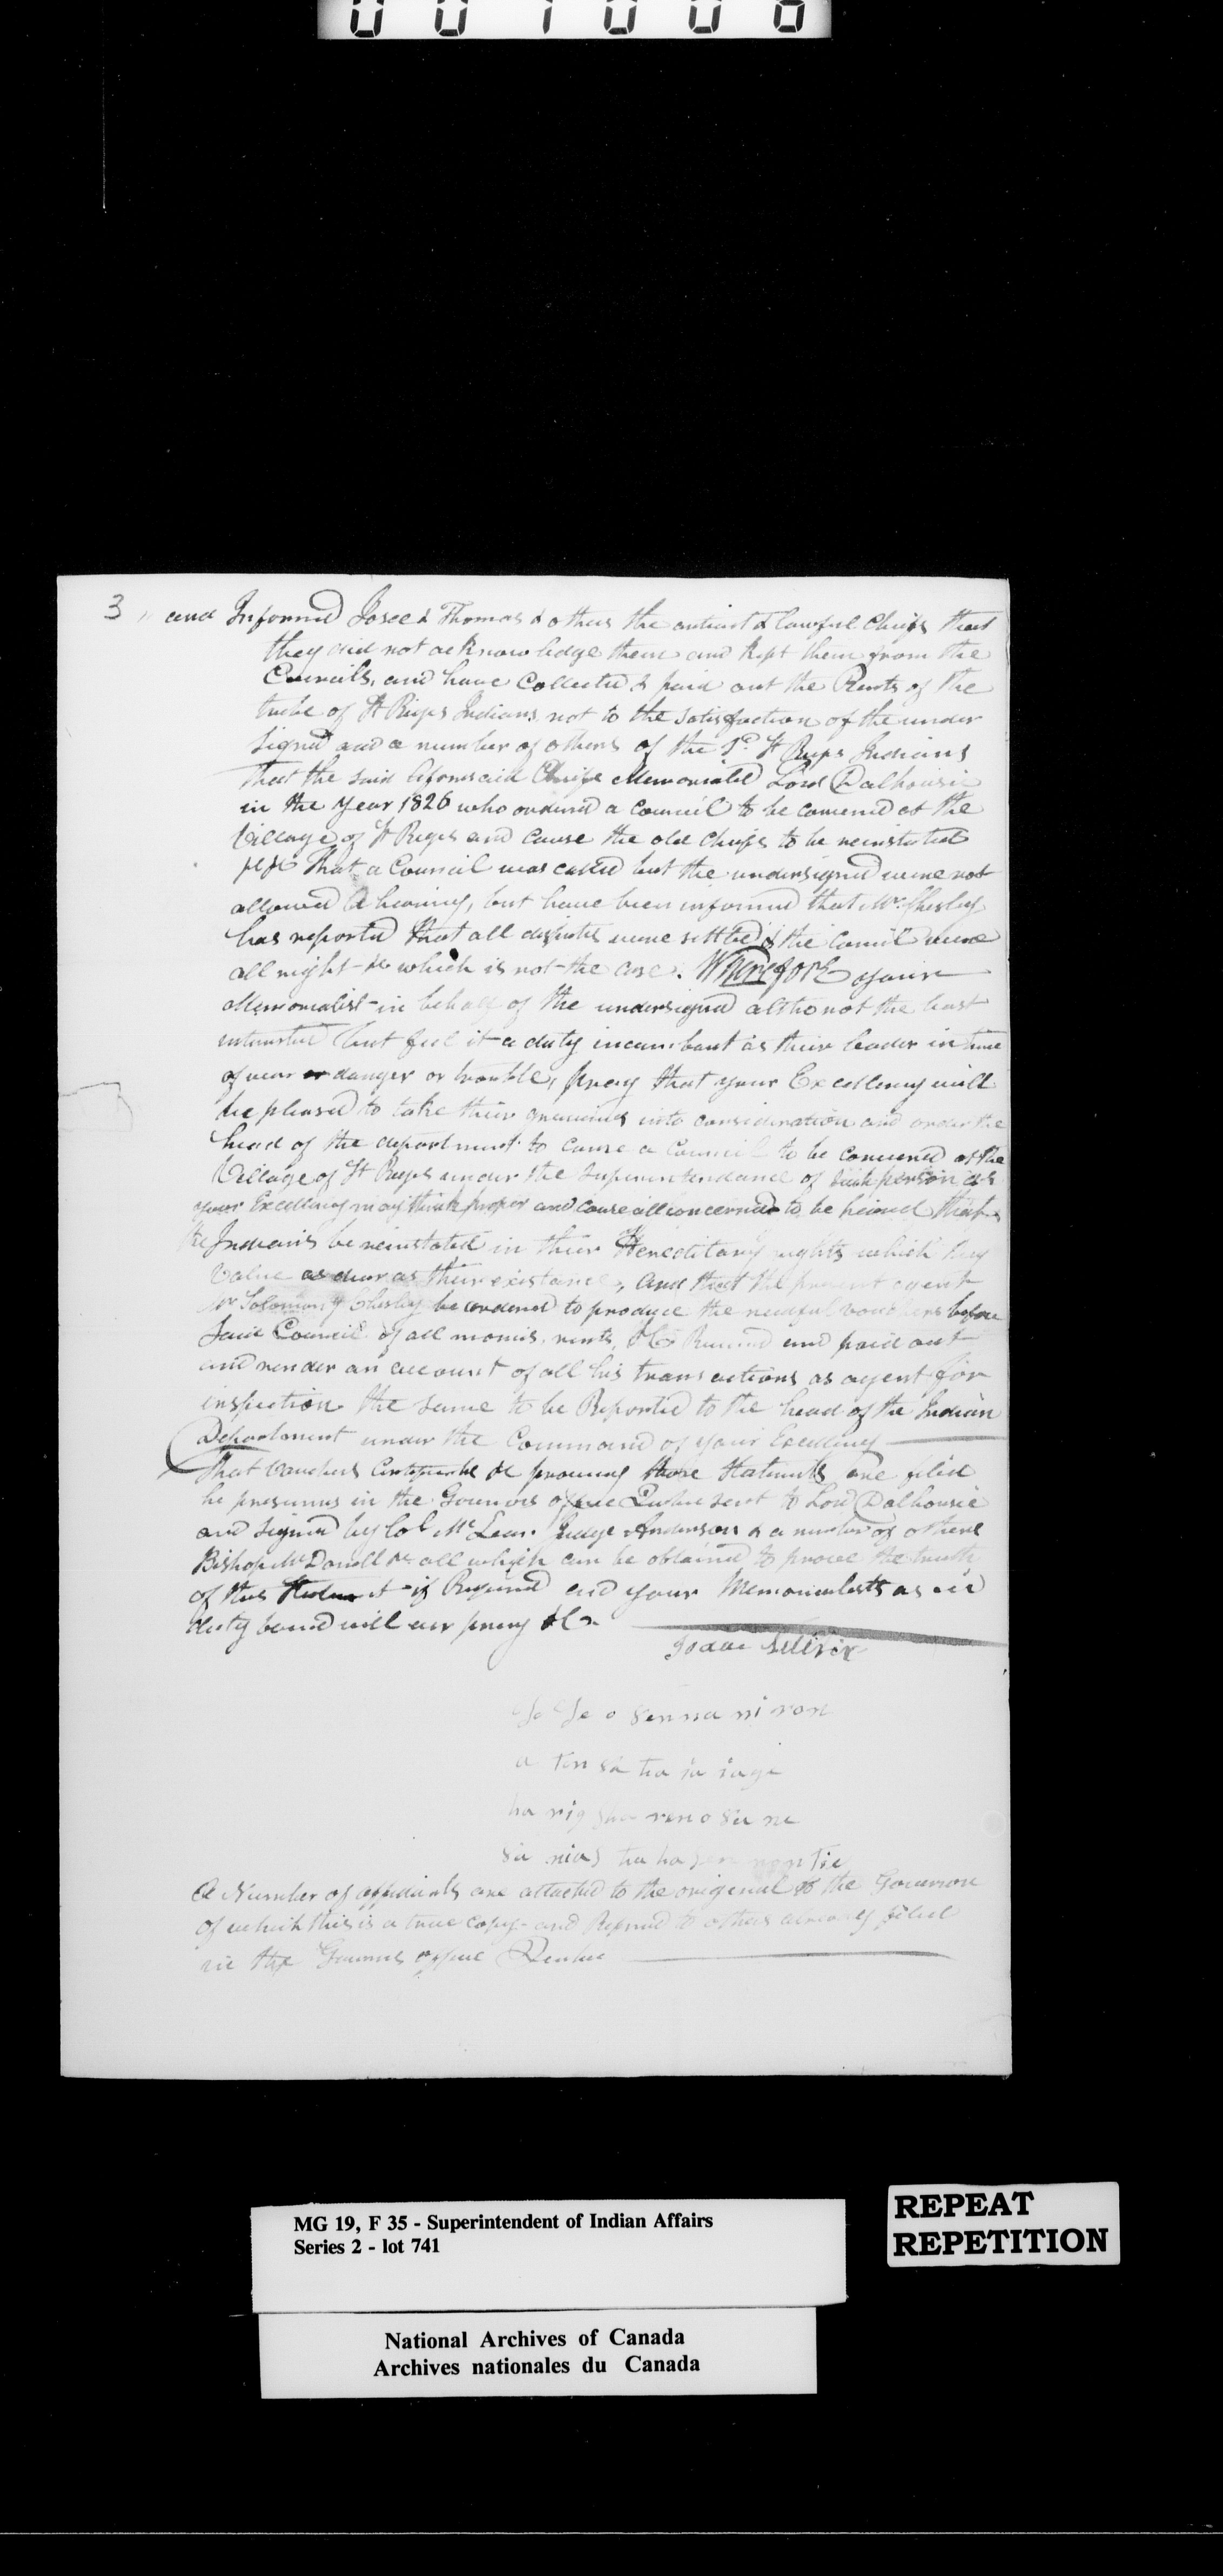 001006
3 and Informed Joseed Thomas & others the antient & lawful Chiefs that
they did not acknowledge them and kept them from the
Councils, and have Collected & paid out the Rents of the
tribe of St Regis Indians not to the satisfaction of the under
signed and a number of others of the Sd. St Regis Indians
That the said aforesaid Chiefs Memorialed Lord Dalhousie
in the year 1826 who ordered a Council to be convened at the
Village of St Regis and cause the old chiefs to be reinstated
That a Council was called but the undersigned were not
allowed a hearing, but have been informed that Mr. Chesley
has reported that all disputes were settled & the Council were
all right &c which is not the case. Wherefore your
Memorialist in behalf of the undersigned altho not the least
interested but feel it a duty incumbant as their leader in time
of war or danger or trouble, pray that your Excellency will
be pleased to take their grievances into consideration and order the
head of the department to cause a Council to be convened at the
Village of St Regis under the Superintendance of such person as
your Excellency may think proper and cause all concerned to be heard that
the Indians be reinstated in their Hereditary rights which they
Value as dear as their existance, and that the present agent
Mr Solomon Y Chesley be ordered to produce the needful vouchers before
said Council of all monies, rents, &c Received and paid out
and render an account of all his transactions as agent for
inspection the same to be Reported to the head of the Indian
Department under the Command of your Excellency
That vouchers Certificate &c proving those Statements are filed
he presumes in the Governors office Quebec sent to Lord Dalhousie
and signed by Col Mc Lean Judge Anderson & a number of others
Bishop McDonell &c all which can be obtained to prove the truth
of this it if Required and your Memorialists as in
duty bound will ever pray &c
Isaac
sennani ron
a ten
ha rig
A Number of affidavits are attached to the original to the Governor
of which this is a true copy and Referred to others already filed
in the Governors office Quebec
MG 19, F 35 - Superintendent of Indian Affairs
Series 2 - lot 741
REPEAT
REPETITION
National Archives of Canada
Archives nationales du Canada